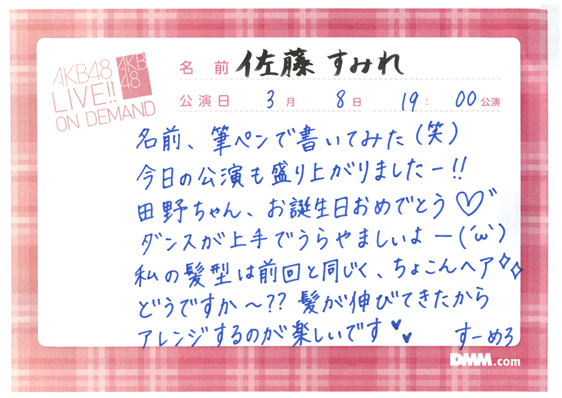 AKB48
LIVE!!
ON DEMAND
AKB
48
名前 佐藤 すみれ
公演日 3月 8日 19:00公演
名前、筆ペンで書いてみた(笑)
今日の公演も盛り上がりましたー!!
田野ちゃん、お誕生日おめでとう♡
ダンスが上手でうらやましいよー(´ω`)
私の髪型は前回と同じく、ちょこんヘア✧✧
どうですか〜?? 髪が伸びてきたから
アレンジするのが楽しいです♥♥ すーめろ
DMM.com